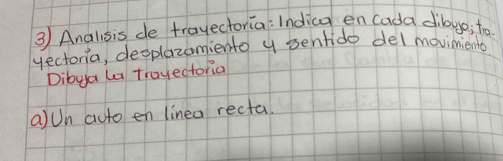 3) Analisis de trayectoria: Indica en cada dibujo; tra-
yectoria, desplazamiento y sentido del movimiento
Dibuja la Trayectoria
a) Un auto en línea recta.